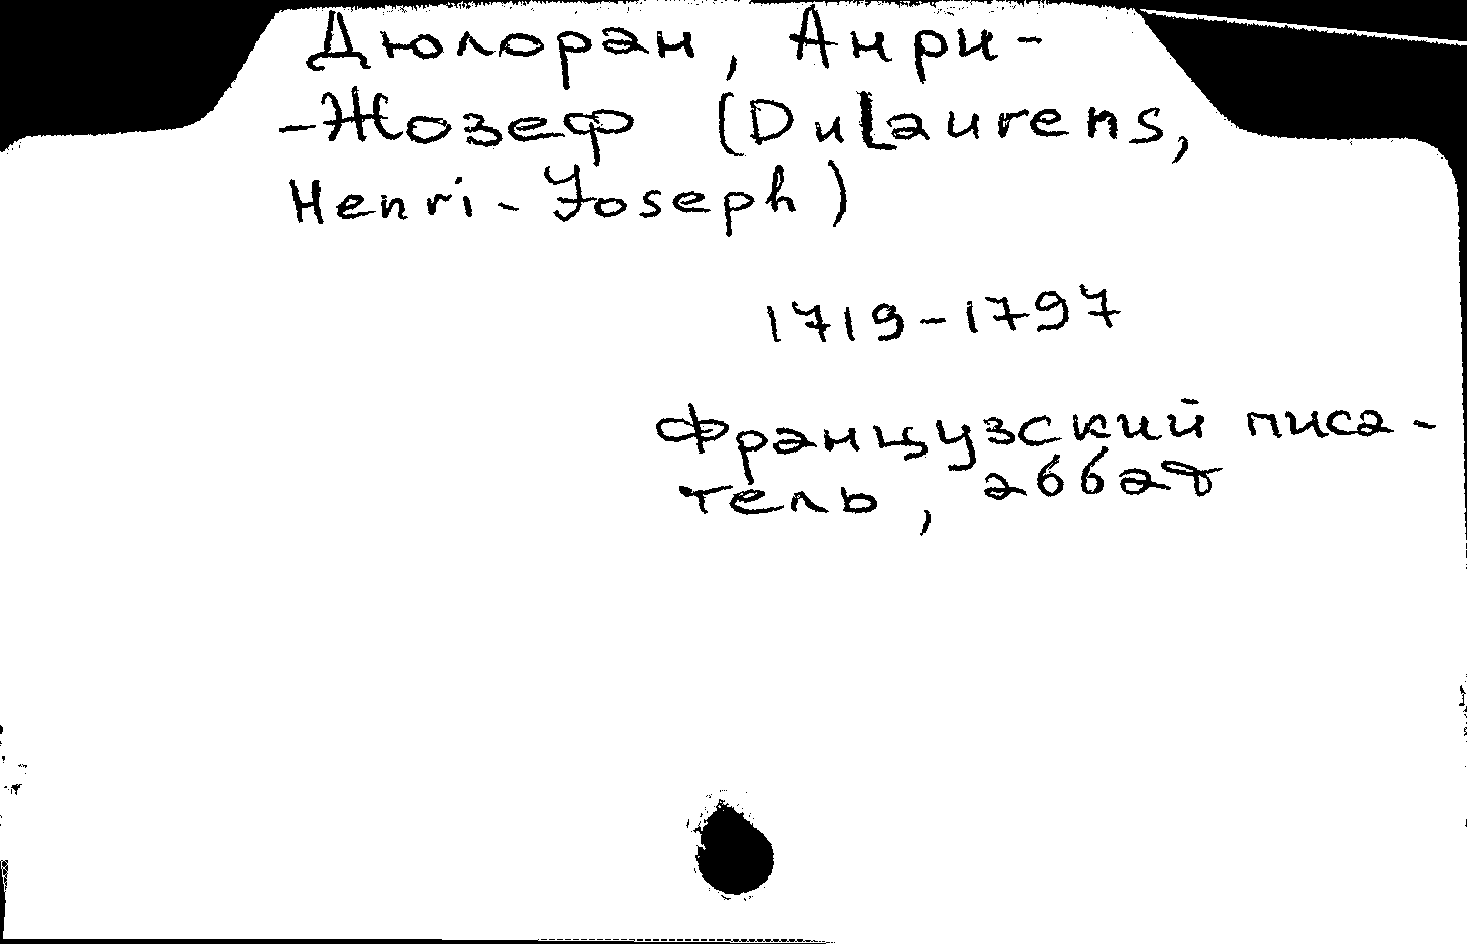 Дюлоран, Анри-
-Жозеф (DuLaurens,
Henri-Joseph)
1719-1797
Французский писа-
тель, аббат